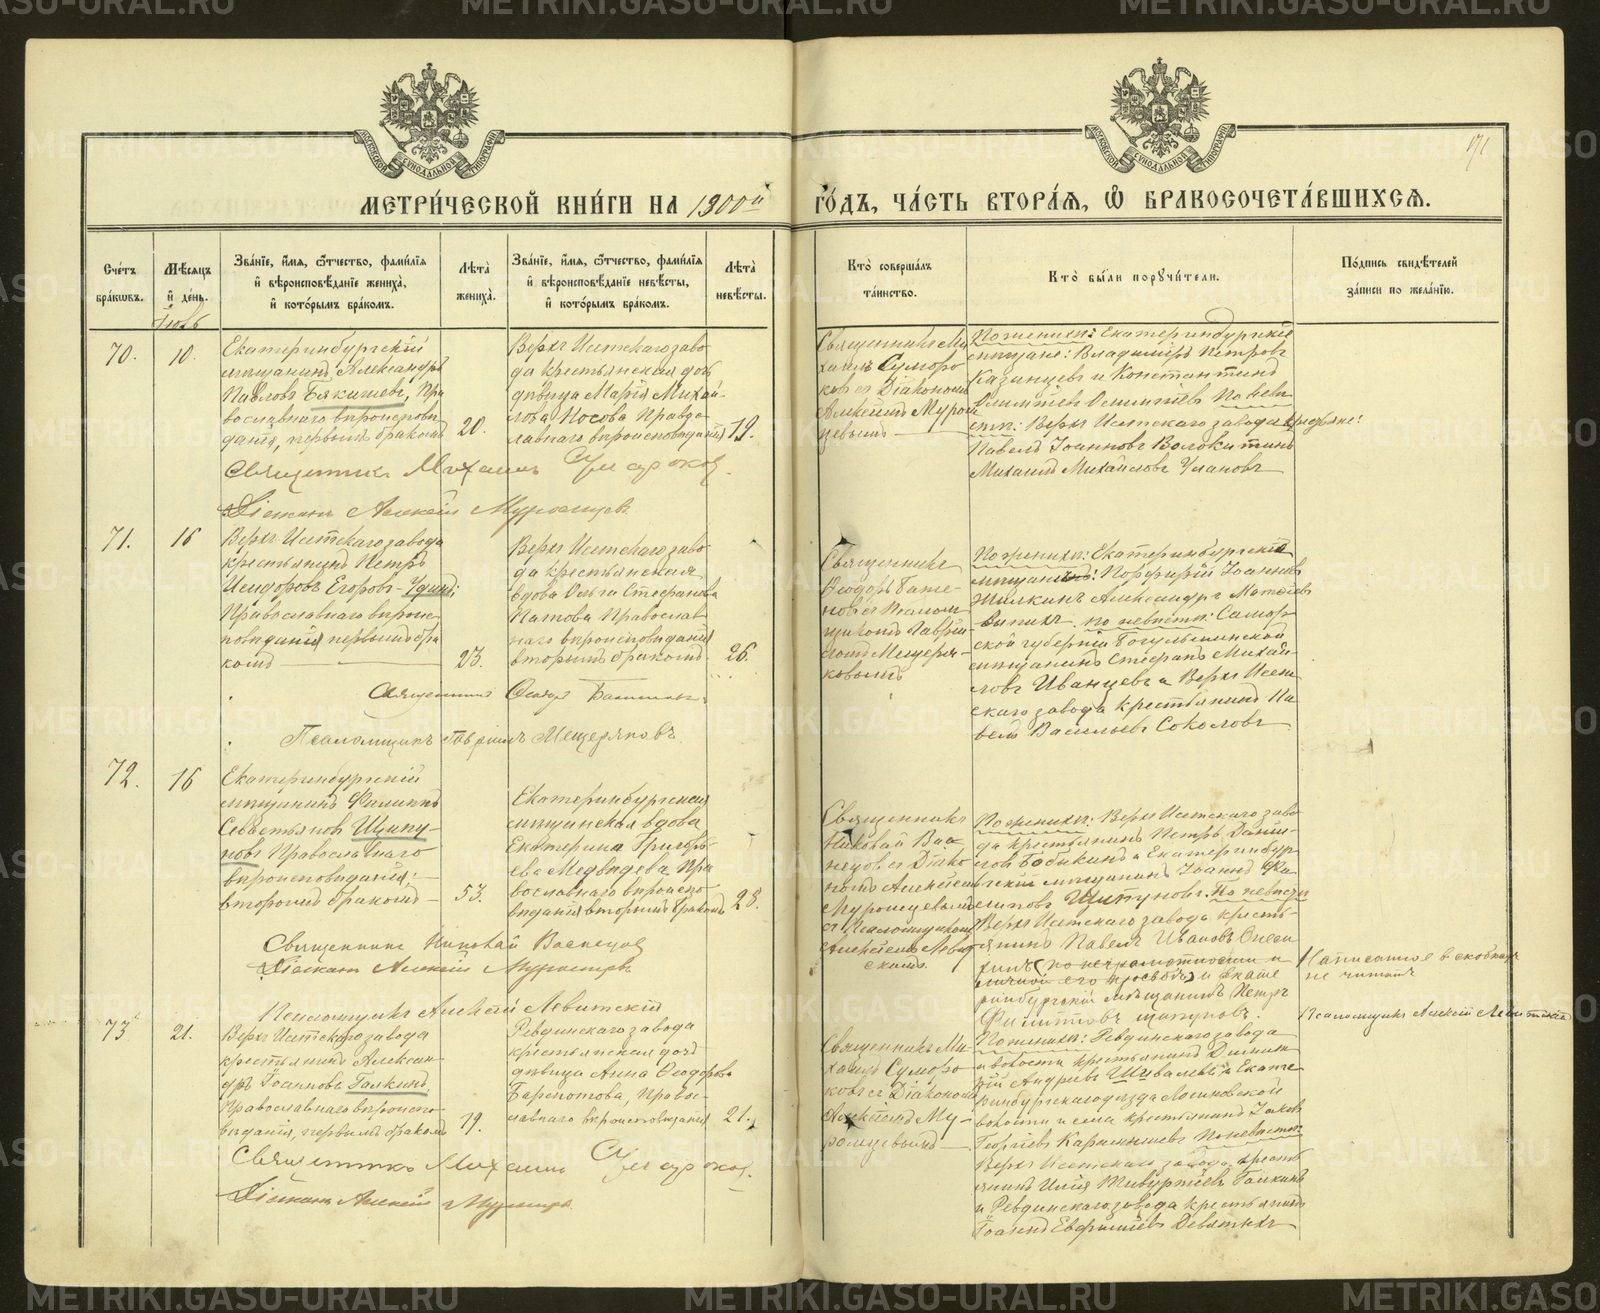 METRIKI.GASO-URAL.RU
171
МЕТРИ́ЧЕСКОЙ КНИ́ГИ НА 1900й ГО́ДЪ, ЧА́СТЬ ВТОРА́Я, Ѡ БРАКОСОЧЕТА́ВШИХСЯ.
Сче́тъ бра́кѡвъ.
Мѣ́сяцъ и҆ де́нь.
Зва́нїе, и҆́мя, ѻ҆́тчество, фами́лїя и҆ вѣроисповѣ́данїе жениха̀, и҆ кото́рымъ бра́комъ.
Лѣ́та жениха̀.
Зва́нїе, и҆́мя, ѻ҆́тчество, фами́лїя и҆ вѣроисповѣ́данїе невѣ́сты, и҆ кото́рымъ бра́комъ.
Лѣ́та невѣ́сты.
Кто̀ соверша́лъ та́инство.
Кто̀ бы́ли порꙋчи́тели.
По́дпись свидѣ́телей за́писи по жела́нїю.
Іюль
70.
10.
Екатеринбургскій
мѣщанинъ Александръ
Павловъ Бякишевъ, Пра
вославнаго вѣроисповѣ
данія, первымъ бракомъ
20.
Верхъ Исетскаго заво
да крестьянская дочь
дѣвица Марія Михай-
лова Носова Правос
лавнаго вѣроисповѣданія
19.
Священникъ Ми
хаилъ Суморо
ковъ съ Діакономъ
Алексѣемъ Муром
цевымъ
По женихѣ: Екатеринбургскіе
мѣщане: Владиміръ Петровъ
Казанцевъ и Константинъ
По невѣ
стѣ: Верхъ Исетскаго завода крестьяне:
Павелъ Іоанновъ Волокитинъ
Михаилъ Михайловъ Улановъ
Священникъ Михаилъ Сумароковъ.
Діаконъ Алексій Муромцевъ
71.
16
Верхъ Исетскаго завода
крестьянинъ Петръ
Исидоровъ Егоровъ-
Православнаго вѣроис
повѣданія первымъ бра
комъ
23.
Верхъ Исетскаго заво
да крестьянская
вдова Ольга Стефанова
Православ
наго вѣроисповѣданія
вторымъ бракомъ
26.
Священникъ
Ѳеодоръ Бате
новъ съ Псалом
щикомъ Гаврі
ломъ Мещеря-
ковымъ
По женихѣ: Екатеринбургскіе
мѣщане: Порфирій Іоанновъ
Шилкинъ Александръ Матвѣевъ
по невѣстѣ: Самар
ской губерніи Богульминской
мѣщанинъ Стефанъ Михай
ловъ Иванцевъ и Верхъ Исет
скаго завода крестьянинъ Па
велъ Васильевъ Соколовъ
Священникъ Ѳеодоръ
Псаломщикъ Гавріилъ Мещеряковъ.
72.
16
Екатеринбургскій
мѣщанинъ Филиппъ
Севастьяновъ Щипу-
новъ Православнаго
вѣроисповѣданія;
вторымъ бракомъ
53.
Екатеринбургская
мѣщанская вдова
Екатерина Григорь
ева Медвѣдева Пра
вославнаго вѣроиспо
вѣданія вторымъ бракомъ
28.
Священникъ
Николай Вас
нецовъ съ Діако
номъ Алексѣемъ
Муромцевымъ
съ Псаломщикомъ
Алексѣемъ Левит
скимъ.
По женихѣ: Верхъ Исетскаго заво
да крестьянинъ Петръ Данил-
овъ Бабикинъ и Екатеринбур
гскій мѣщанинъ Іоаннъ Фи
липовъ Щипуновъ: По невѣстѣ
Верхъ Исетскаго завода кресть-
янинъ Павелъ Ивановъ
(по неграмотности и
личной его просьбѣ) и Екате
ринбургскій мѣщанинъ Петръ
Филиповъ Щипуновъ.
Написанное въ скобкахъ
не читать
Псаломщикъ Алексій Левитскій
Священникъ Николай Васнецовъ
Діаконъ Алексій Муромцевъ
Псаломщикъ Алексій Левитскій
73
21.
Верхъ Исетскаго завода
крестьянинъ Алексан
дръ Іоанновъ Галкинъ,
Православнаго вѣроиспо
вѣданія, первымъ бракомъ
19.
Ревдинскаго завода
крестьянская дочь
дѣвица Анна Ѳеодорова
Правос-
лавнаго вѣроисповѣданія
21.
Священникъ Ми
хаилъ Суморо
ковъ съ Діакономъ
Алексѣемъ Му-
ромцевымъ
По женихѣ: Ревдинскаго завода
и волости крестьянинъ Дмит
рій Андреевъ Шивалевъ и Екате
ринбургскаго уѣзда Лосиновской
волости и села крестьянинъ Іаковъ
Георгіевъ По невѣстѣ:
Верхъ Исетскаго завода кресть
янинъ Илія Тивуртіевъ Галкинъ
и Ревдинскаго завода крестьянинъ
Іоаннъ Евфиміевъ Девятыхъ
Священникъ Михаилъ Сумароковъ.
Діаконъ Алексій Муромцевъ